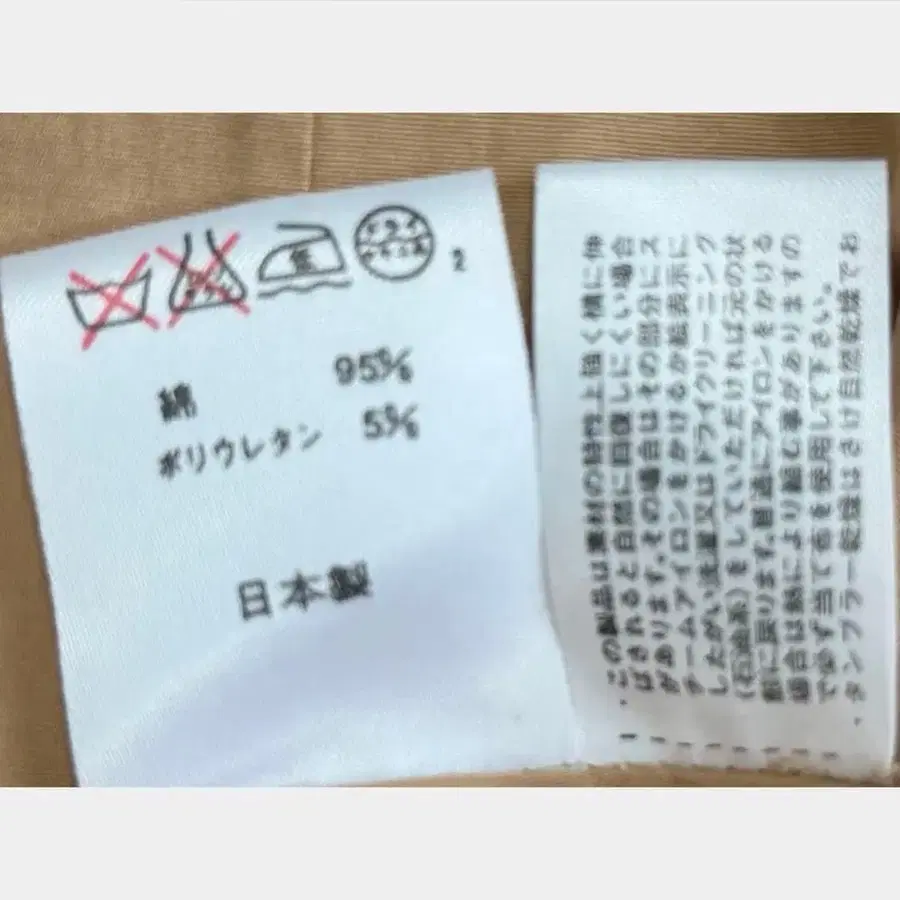 ドライ
セキユ系
2
綿 95%
ポリウレタン 5%
日本製
・この製品は素材の特性上強く横に伸
ばされると自然に回復しにくい場合
があります。その場合はその部分にス
チームアイロンをかけるか絵表示に
したがい洗濯又はドライクリーニング
(石油系)をしていただければ元の状
態に戻ります。普通にアイロンをかける
場合は熱により縮む事がありますの
で必ず当て布を使用して下さい。
・タンブラー乾燥はさけ自然乾燥でお